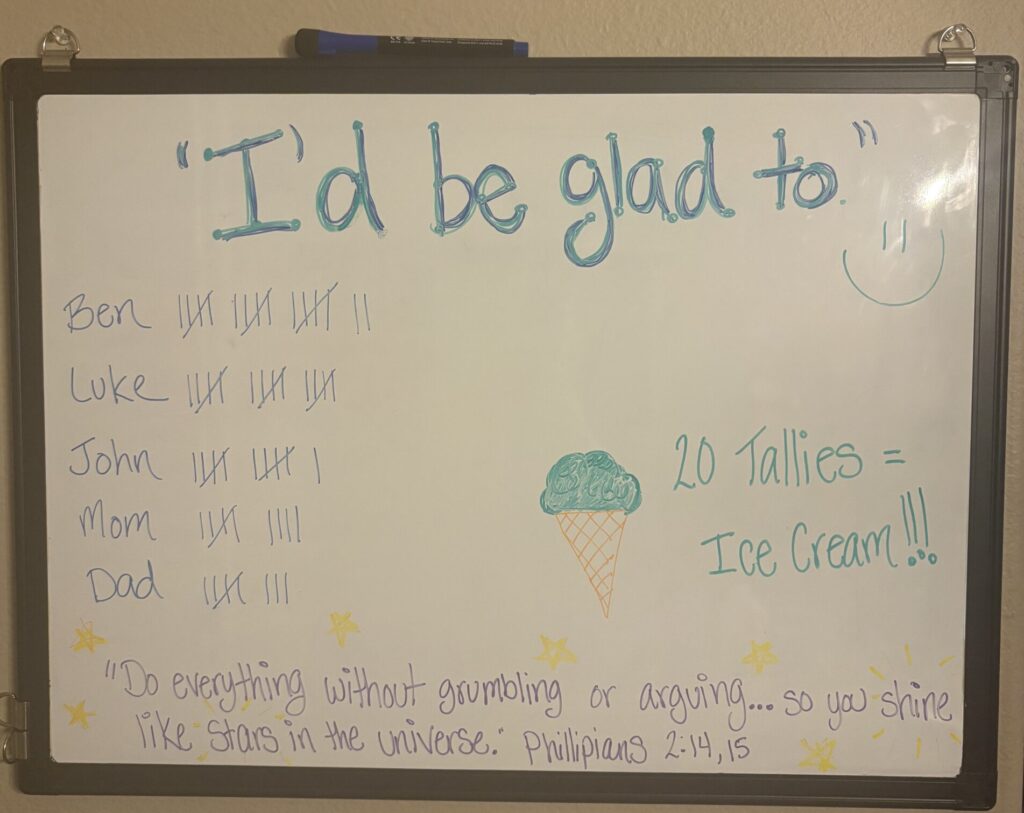 "I'd be glad to."
Ben 𝍸 𝍸 𝍸 ||
Luke 𝍸 𝍸 𝍸
John 𝍸 𝍸 |
Mom 𝍸 ||||
Dad 𝍸 |||
20 Tallies =
Ice Cream!!!
"Do everything without grumbling or arguing... so you shine
like stars in the universe." Phillipians 2:14,15